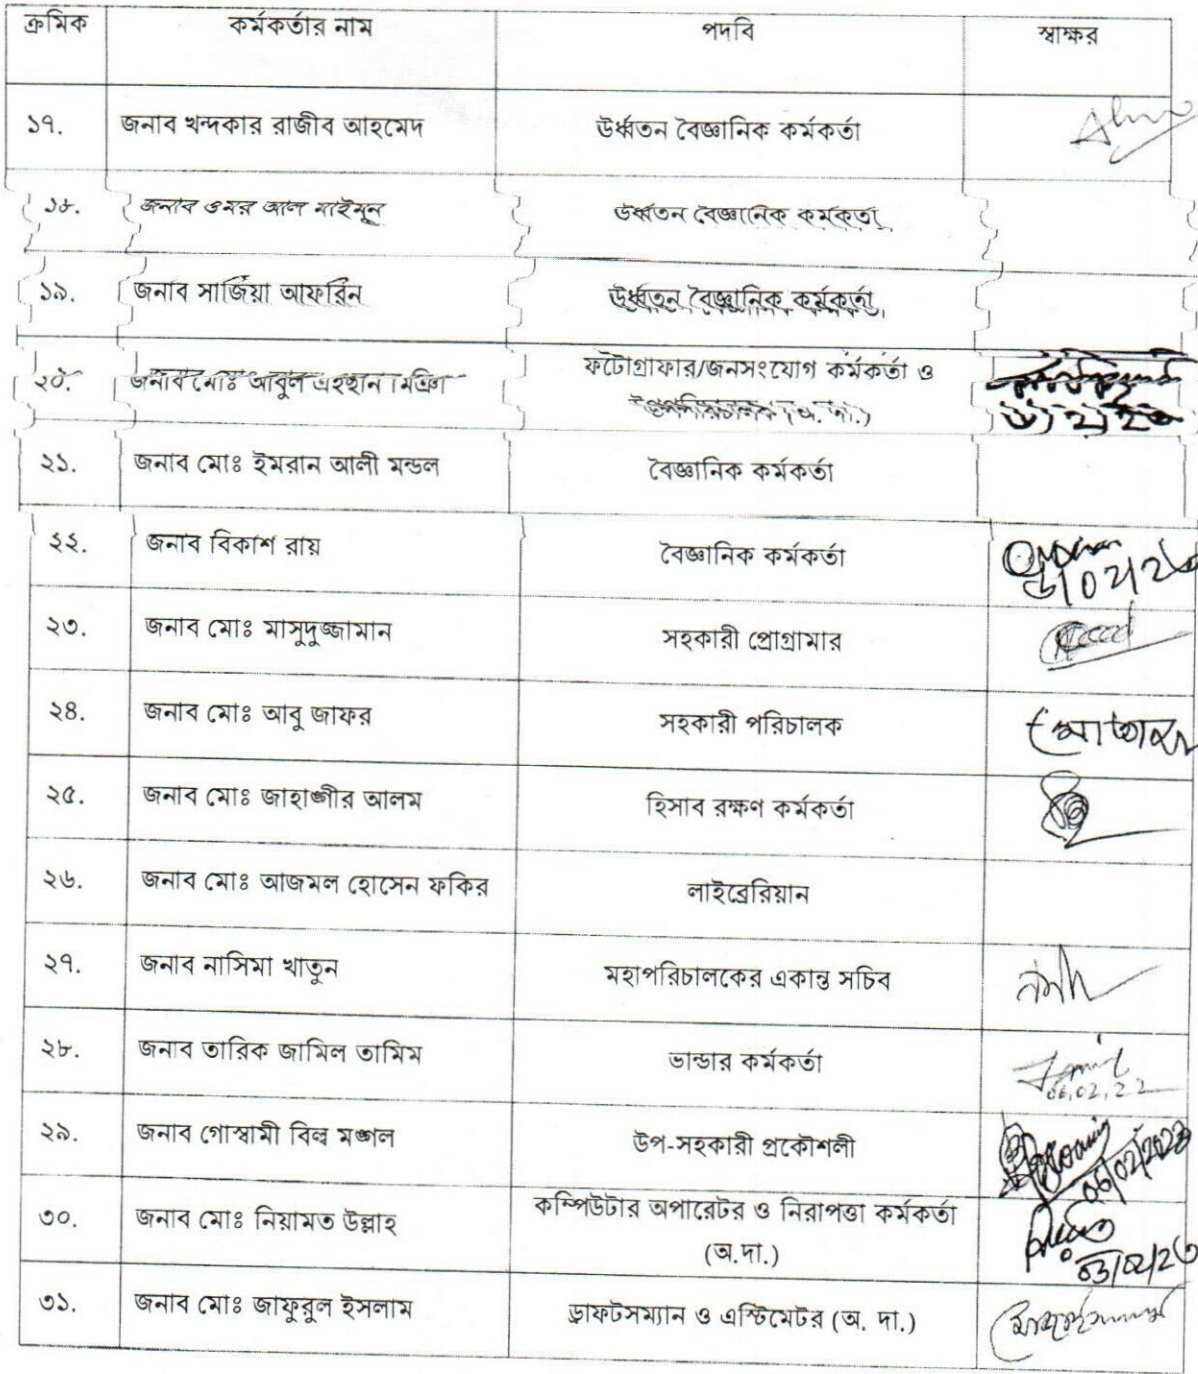 ক্রমিক কর্মকর্তার নাম পদবি স্বাক্ষর
১৭. জনাব খন্দকার রাজীব আহমেদ ঊর্ধ্বতন বৈজ্ঞানিক কর্মকর্তা
১৮. জনাব ওমর আল মাইমুন ঊর্ধ্বতন বৈজ্ঞানিক কর্মকর্তা
১৯. জনাব সার্জিয়া আফরিন ঊর্ধ্বতন বৈজ্ঞানিক কর্মকর্তা
২০. জনাব মোঃ আবুল এহছান ফটোগ্রাফার/জনসংযোগ কর্মকর্তা ও
উপপরিচালক (অ. দা.)
২১. জনাব মোঃ ইমরান আলী মন্ডল বৈজ্ঞানিক কর্মকর্তা
২২. জনাব বিকাশ রায় বৈজ্ঞানিক কর্মকর্তা
২৩. জনাব মোঃ মাসুদুজ্জামান সহকারী প্রোগ্রামার
২৪. জনাব মোঃ আবু জাফর সহকারী পরিচালক
২৫. জনাব মোঃ জাহাঙ্গীর আলম হিসাব রক্ষণ কর্মকর্তা
২৬. জনাব মোঃ আজমল হোসেন ফকির লাইব্রেরিয়ান
২৭. জনাব নাসিমা খাতুন মহাপরিচালকের একান্ত সচিব
২৮. জনাব তারিক জামিল তামিম ভান্ডার কর্মকর্তা
06,02,22
২৯. জনাব গোস্বামী বিল্ব মঙ্গল উপ-সহকারী প্রকৌশলী
06/02/2023
৩০. জনাব মোঃ নিয়ামত উল্লাহ কম্পিউটার অপারেটর ও নিরাপত্তা কর্মকর্তা
(অ.দা.)
৩১. জনাব মোঃ জাফুরুল ইসলাম ড্রাফটসম্যান ও এস্টিমেটর (অ. দা.)